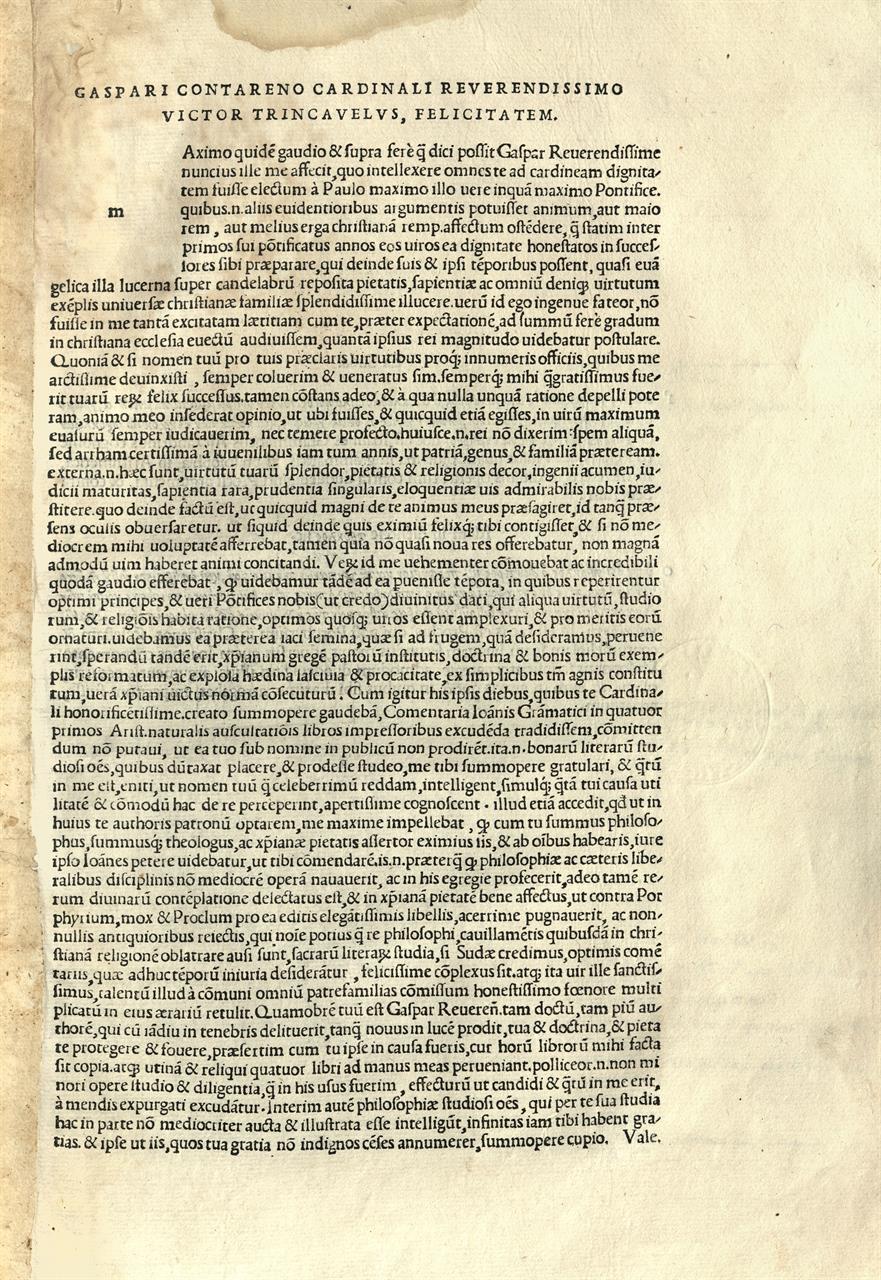 GASPARI CONTARENO CARDINALI REVERENDISSIMO
VICTOR TRINCAVELVS, FELICITATEM.
Aximo quidẽ gaudio & supra ferè q̃ dici possit Gaspar Reuerendissime
nuncius ille me affecit, quo intellexere omnes te ad cardineam dignita⸗
tem fuisse electum à Paulo maximo illo uere inquã maximo Pontifice.
m
quibus.n.aliis euidentioribus argumentis potuisset animum, aut maio
rem, aut melius erga christianã remp. affectum ostẽdere, q̃ statim inter
primos sui põtificatus annos eos uiros ea dignitate honestatos in succes⸗
sores sibi præparare, qui deinde suis & ipsi tẽporibus possent, quasi euã
gelica illa lucerna super candelabrũ reposita pietatis, sapientiæ ac omniũ deniq; uirtutum
exẽplis uniuersæ christianæ familiæ splendidissime illucere. uerũ id ego ingenue fateor, nõ
fuisse in me tantã excitatam lætitiam cum te, præter expectationẽ, ad summũ ferè gradum
in christiana ecclesia euectũ audiuissem, quantã ipsius rei magnitudo uidebatur postulare.
Quoniã & si nomen tuũ pro tuis præclaris uirtutibus proq; innumeris officiis, quibus me
arctissime deuinxisti, semper coluerim & ueneratus sim. semperq; mihi q̃gratissimus fue⸗
rit tuarũ reꝝ felix successus. tamen cõstans adeo, & à qua nulla unquã ratione depelli pote
ram, animo meo insederat opinio, ut ubi fuisses, & quicquid etiã egisses, in uirũ maximum
euasurũ semper iudicauerim, nec temere profecto. huiusce.n.rei nõ dixerim spem aliquã,
sed arrham certissimã à iuuenilibus iam tum annis, ut patriã, genus, & familiã præteream.
externa.n.hæc sunt, uirtutũ tuarũ splendor, pietatis & religionis decor, ingenii acumen, iu⸗
dicii maturitas, sapientia rara, prudentia singularis, eloquentiæ uis admirabilis nobis præ⸗
stitere. quo deinde factũ est, ut quicquid magni de te animus meus præsagiret, id tanq̃ præ⸗
sens oculis obuersaretur. ut siquid deinde quis eximiũ felixq; tibi contigisset, & si nõ me⸗
diocrem mihi uoluptatẽ afferrebat, tamen quia nõ quasi noua res offerebatur, non magnã
admodũ uim haberet animi concitandi. Veꝝ id me uehementer cõmouebat ac incredibili
quodã gaudio efferebat, ꝙ uidebamur tãdẽ ad ea puenisse tẽpora, in quibus reperirentur
optimi principes, & ueri Põtifices nobis (ut credo) diuinitus dati, qui aliqua uirtutũ, studio
rum, & religiõis habita ratione, optimos quosq; uiros essent amplexuri, & pro meritis eorũ
ornaturi. uidebamus ea præterea iaci semina, quæ si ad frugem, quã desideramus, peruene
rint, sperandũ tandẽ erit, xp̃ianum gregẽ pastorũ institutis, doctrina & bonis morũ exem⸗
plis reformatum, ac explosa hædina lasciuia & procacitate, ex simplicibus tm̃ agnis constitu
tum, uerã xp̃iani uictus normã cõsecuturũ. Cum igitur his ipsis diebus, quibus te Cardina⸗
li honorificẽtissime.creato summopere gaudebã, Comentaria Ioãnis Grãmatici in quatuor
primos Arist. naturalis auscultatiõis libros impressoribus excudẽda tradidissem, cõmitten
dum nõ putaui, ut ea tuo sub nomine in publicũ non prodirẽt. ita.n.bonarũ literarũ stu⸗
diosi oẽs, quibus dũtaxat placere, & prodesse studeo, me tibi summopere gratulari, & q̃tũ
in me est, eniti, ut nomen tuũ q̃celeberrimũ reddam, intelligent, simulq; q̃tã tui causa uti
litatẽ & cõmodũ hac de re perceperint, apertissime cognoscent. illud etiã accedit, qđ ut in
huius te authoris patronũ optarem, me maxime impellebat, ꝙ cum tu summus philoso⸗
phus, summusq; theologus, ac xp̃ianæ pietatis assertor eximius sis, & ab oĩbus habearis, iure
ipso Ioãnes petere uidebatur, ut tibi cõmendarẽ. is.n.præterq̃ ꝙ philosophiæ ac cæteris libe⸗
ralibus disciplinis nõ mediocrẽ operã nauauerit, ac in his egregie profecerit, adeo tamẽ re⸗
rum diuinarũ contẽplatione delectatus est, & in xp̃ianã pietatẽ bene affectus, ut contra Por
phyrium, mox & Proclum pro ea editis elegãtissimis libellis, acerrime pugnauerit, ac non⸗
nullis antiquioribus reiectis, qui noĩe potius q̃ re philosophi, cauillamẽtis quibusdã in chri⸗
stianã religionẽ oblatrare ausi sunt, sacrarũ literaꝝ studia, si Sudæ credimus, optimis comẽ
tariis, quæ adhuc tẽporũ iniuria desiderãtur, felicissime cõplexus sit. atq; ita uir ille sanctis⸗
simus, talentũ illud à cõmuni omniũ patrefamilias cõmissum honestissimo fœnore multi
plicatũ in eius ærariũ retulit. Quamobrẽ tuũ est Gaspar Reueren̄. tam doctũ, tam piũ au⸗
thorẽ, qui cũ iãdiu in tenebris delituerit, tanq̃ nouus in lucẽ prodit, tua & doctrina, & pieta
te protegere & fouere, præsertim cum tu ipse in causa fueris, cur horũ librorũ mihi facta
sit copia. atq; utinã & reliqui quatuor libri ad manus meas perueniant. polliceor.n.non mi
nori opere studio & diligentia, q̃ in his usus fuerim, effecturũ ut candidi & q̃tũ in me erit,
à mendis expurgati excudãtur. Interim autẽ philosophiæ studiosi oẽs, qui per te sua studia
hac in parte nõ mediocriter aucta & illustrata esse intelligũt, infinitas iam tibi habent gra⸗
tias. & ipse ut iis, quos tua gratia nõ indignos cẽses annumerer, summopere cupio. Vale.